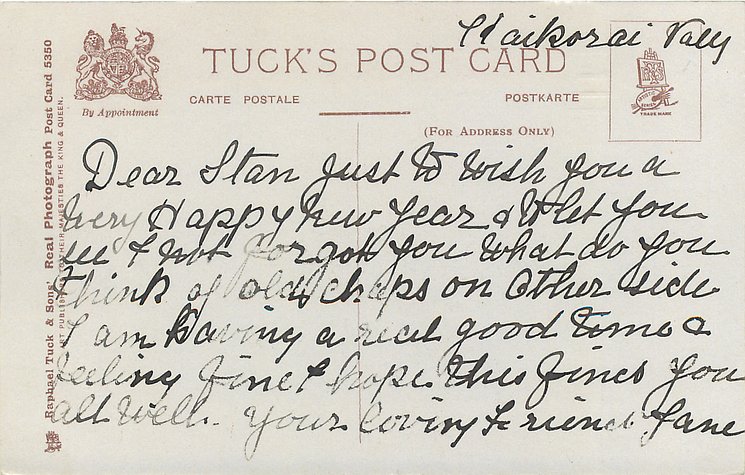 Kaikorai Vally
TUCK'S POST CARD
By Appointment
CARTE POSTALE
POSTKARTE
(FOR ADDRESS ONLY)
TRADE MARK
Raphael Tuck & Sons' Real Photograph Post Card 5350
ART PUBLISHERS TO THEIR MAJESTIES THE KING & QUEEN.
Dear Stan Just to wish you a
very Happy new Year & to let you
see I not forgot you what do you
think of old chaps on other side
I am having a real good time &
feeling fine I hope this fines you
all well. your loving Friend Jane